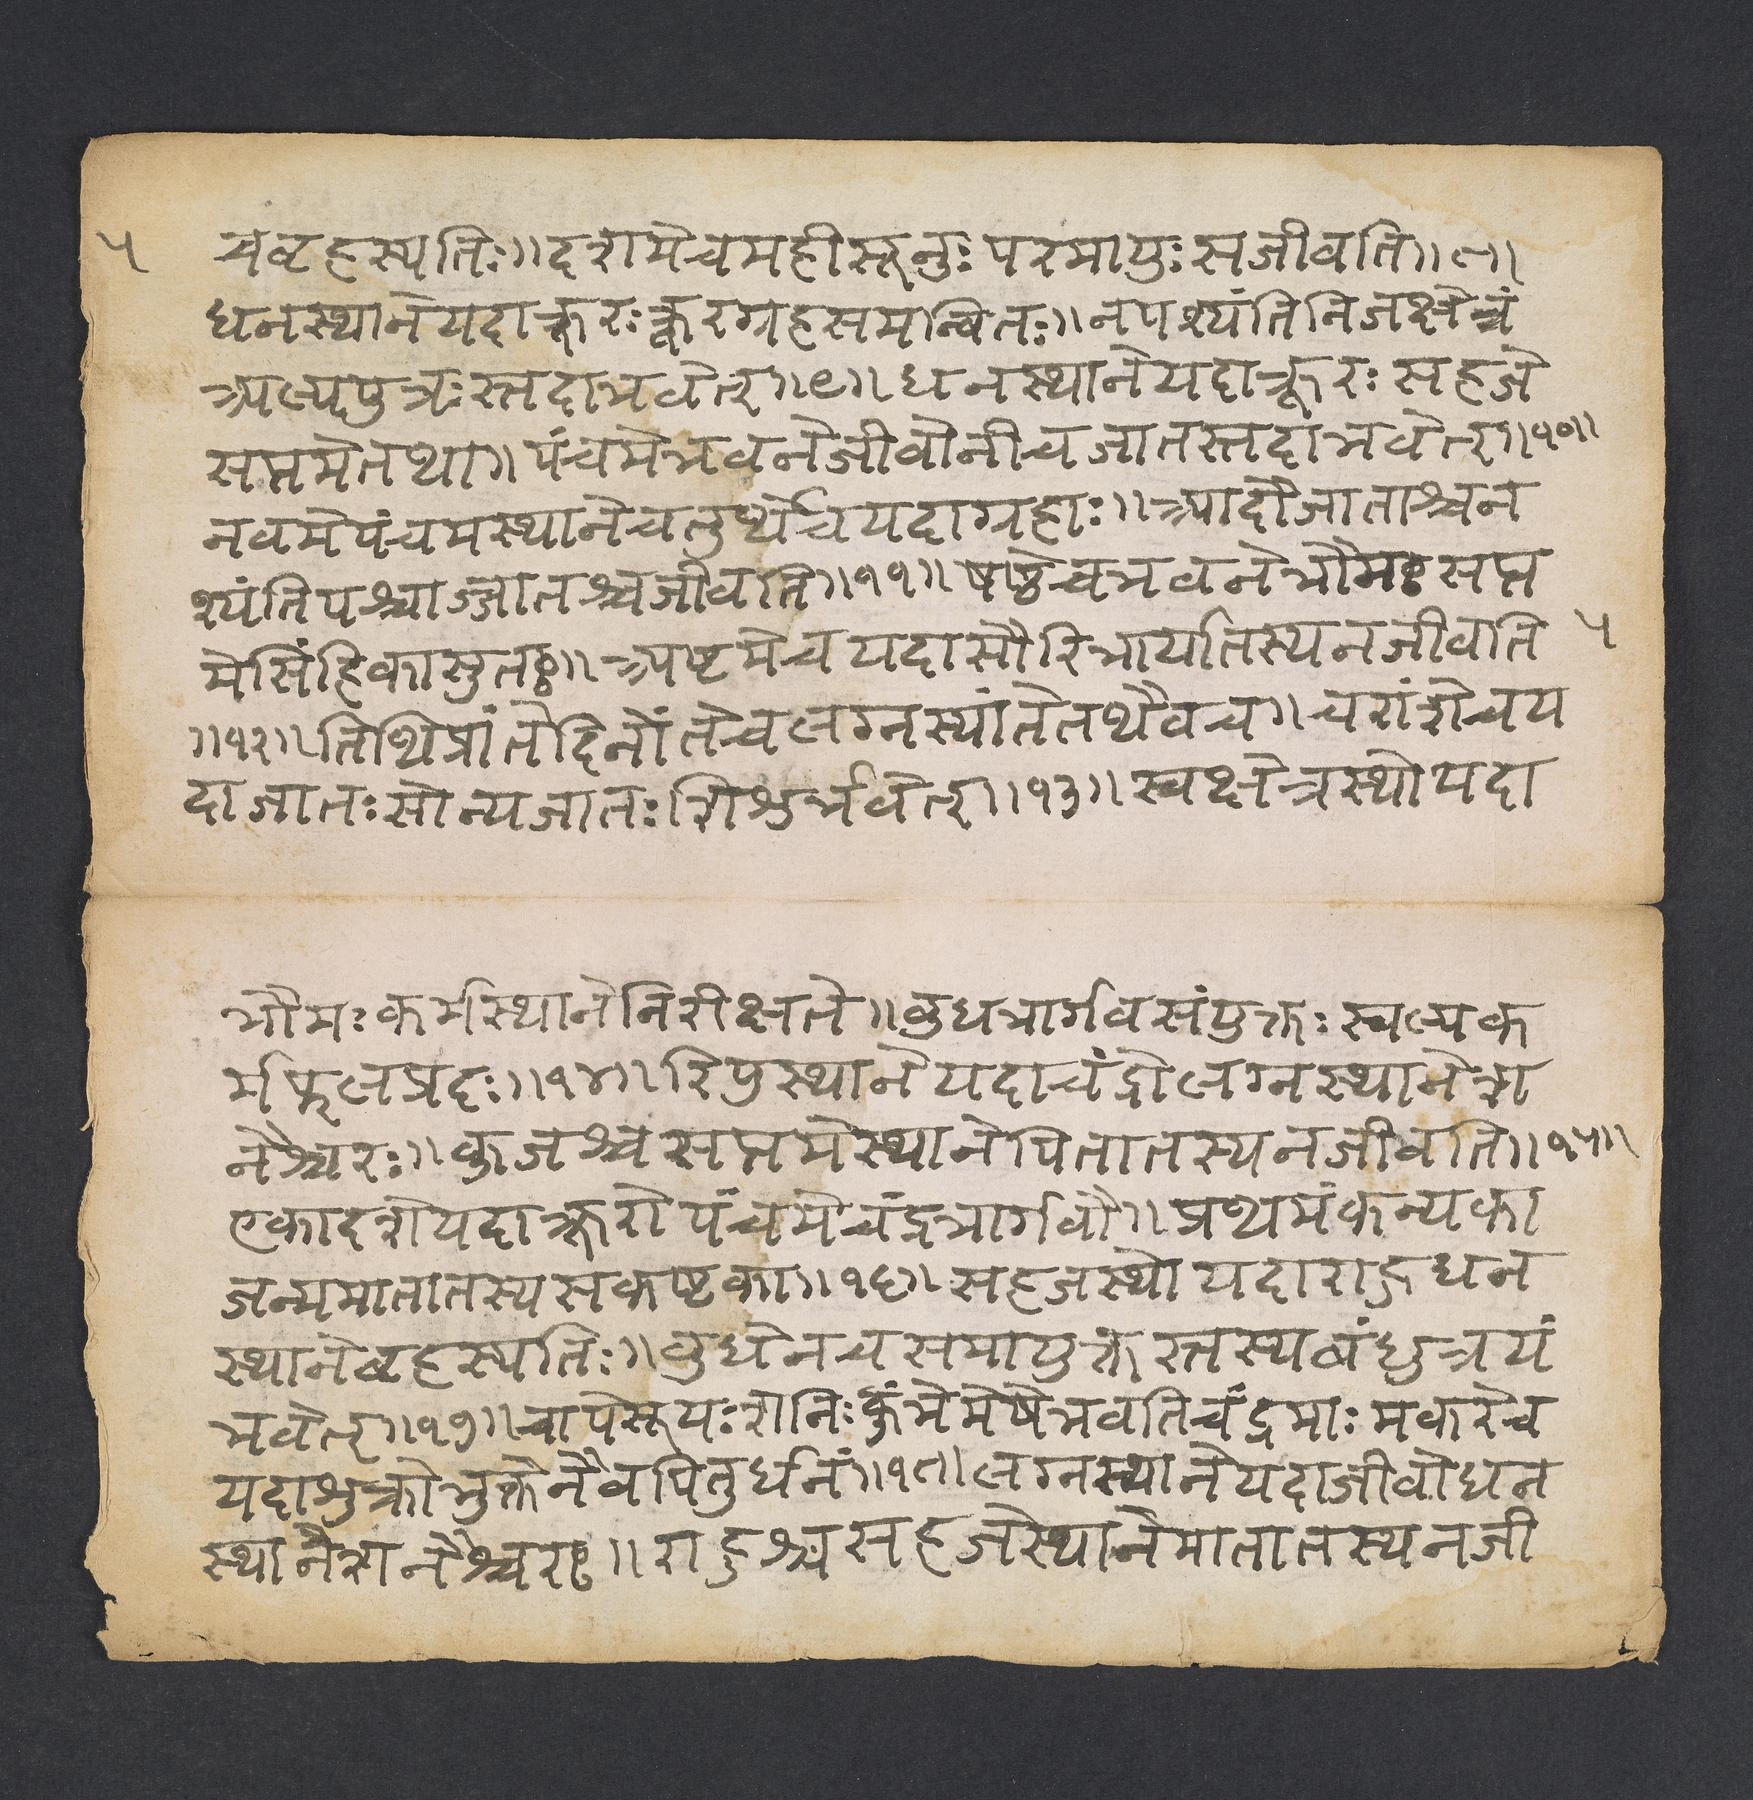 ५ चबृहस्पतिः॥दशमेचमहीसूनुः परमायुः सजीवति॥८॥
धनस्थानेयदाक्रूरः क्रूरग्रहसमन्वितः॥नपश्यंतिनिजक्षेत्रं
अल्पपुत्रःस्तदाभवेत्॥९॥धनस्थानेयदाक्रूरः सहजे
सप्तमेतथा॥पंचमेभवनेजीवोनीचजातस्तदाभवेत्॥१०॥
नवमेपंचमस्थानेचतुर्थेचयदाग्रहाः॥आदौजाताश्चन
श्यंतिपश्चाज्जातश्चजीवति॥११॥षष्ठेचभवनेभौमः सप्त
मेसिंहिकासुतः॥अष्टमेचयदासौरिभार्यातस्यनजीवति ५
॥१२॥तिथिप्रांतेदिनांतेचलग्नस्यांतेतथैवच॥चरांशेचय
दाजातः सोन्यजातः शिशुर्भवेत्॥१३॥स्वक्षेत्रस्थोयदा
भौमः कर्मस्थानेनिरीक्षते॥बुधभार्गवसंयुक्तः स्वल्पक
र्मफलप्रदः॥१४॥रिपुस्थानेयदाचंद्रोलग्नस्थानेश
नैश्चरः॥कुजश्चसप्तमेस्थानेपितातस्यनजीवति॥१५॥
एकादशेयदाक्रूरोपंचमेचंद्रभार्गवौ॥प्रथमंकन्यका
जन्ममातातस्यसकष्टका॥१६॥सहजस्थोयदाराहुधन
स्थानेबृहस्पतिः॥बुधेनचसमायुक्तस्तस्यबंधुत्रयं
भवेत्॥१७॥चापेसूयः शनिः कुंभेमेषेभवतिचंद्रमाः मकरेच
यदाशुक्रोभुक्तेनैवपितुर्धनं॥१८॥लग्नस्थानेयदाजीवोधन
स्थानेशनैश्चरः॥राहुश्चसहजेस्थानेमातातस्यनजी